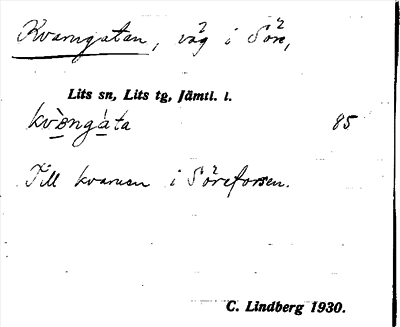 Kvarngatan, väg i Söre,
Lits sn, Lits tg, Jämtl. l.
85
Till kvarnen i Söreforsen.
C. Lindberg 1930.